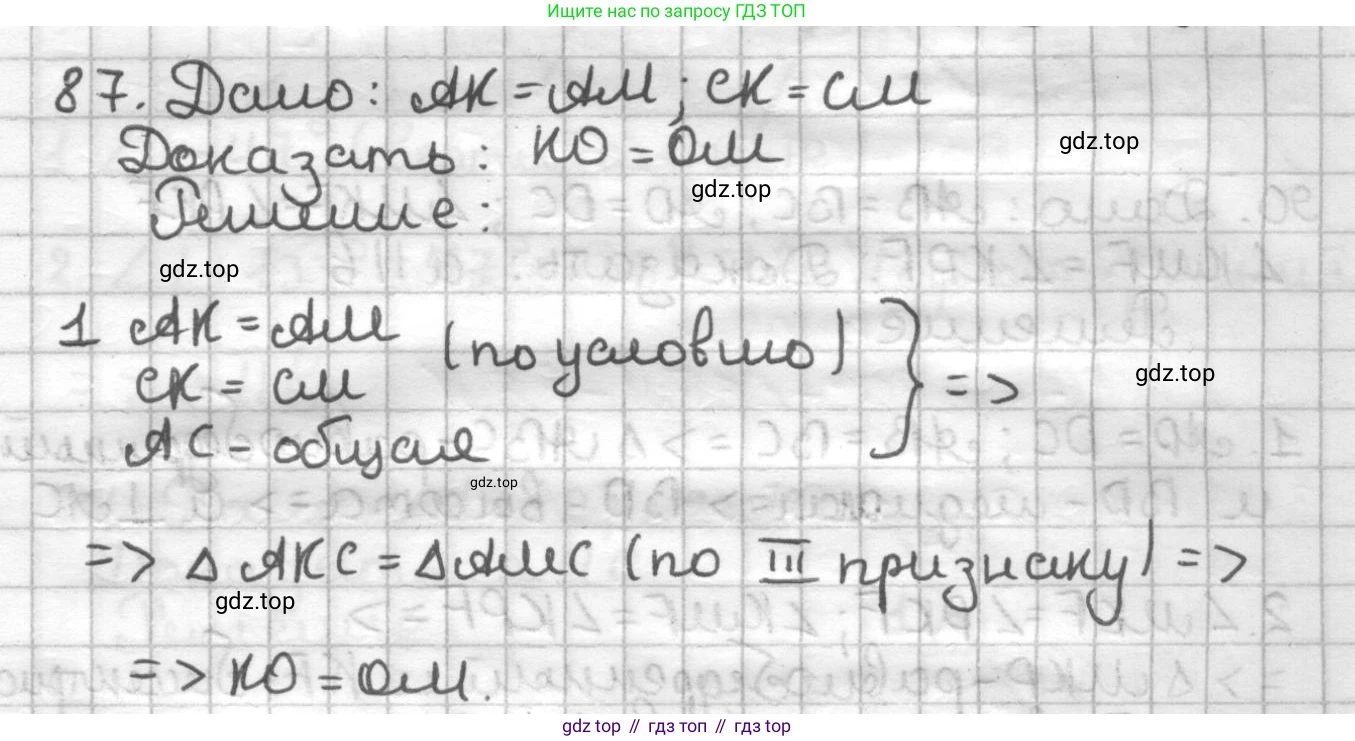 Ищите нас по запросу ГДЗ ТОП
87. Дано: АК = АМ; СК = СМ
Доказать: КО = ОМ
gdz.top
gdz.top
Решение:
gdz.top
1 АК = АМ (по условию)
СК = СМ
} =>
gdz.top
АС - общая
gdz.top
=> Δ АКС = Δ АМС (по III признаку) =>
gdz.top
=> КО = ОМ.
gdz top // гдз топ // gdz top